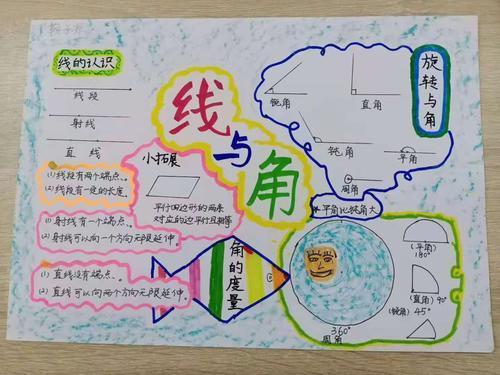 线的认识
线段
射线
直线
(1)线段有两个端点。
(2)线段有一定的长度
(1)射线有一个端点。
(2)射线可以向一个方向无限延伸。
(1)直线没有端点。
(2)直线可以向两个方向无限延伸。
线
与
角
小拓展
平行四边形的两条
对应的边平行且相等
角的度量
旋转与角
锐角
直角
钝角
平角
周角
*平角比钝角大
(平角)
180°
(直角) 90°
(锐角) 45°
360°
周角